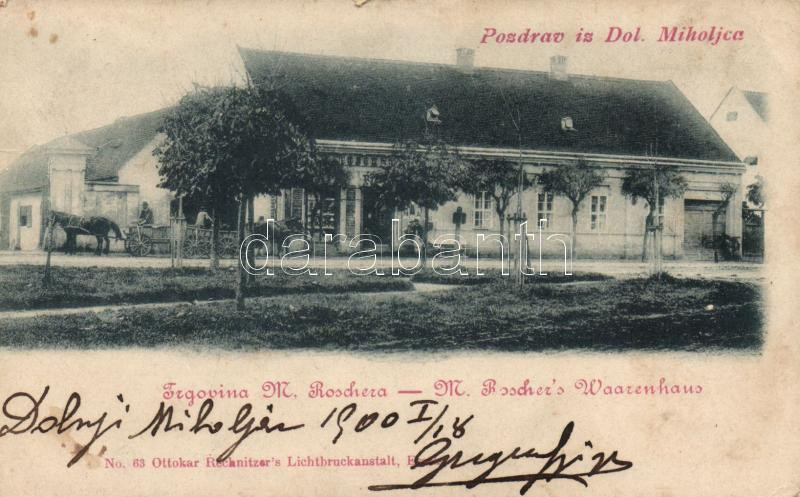 Pozdrav iz Dol. Miholjca
darabanth
Trgovina M. Roschera — M. Roscher's Waarenhaus
Dolnji Miholjac 1900 I/18
No. 63 Ottokar Rechnitzer's Lichtbruckanstalt,